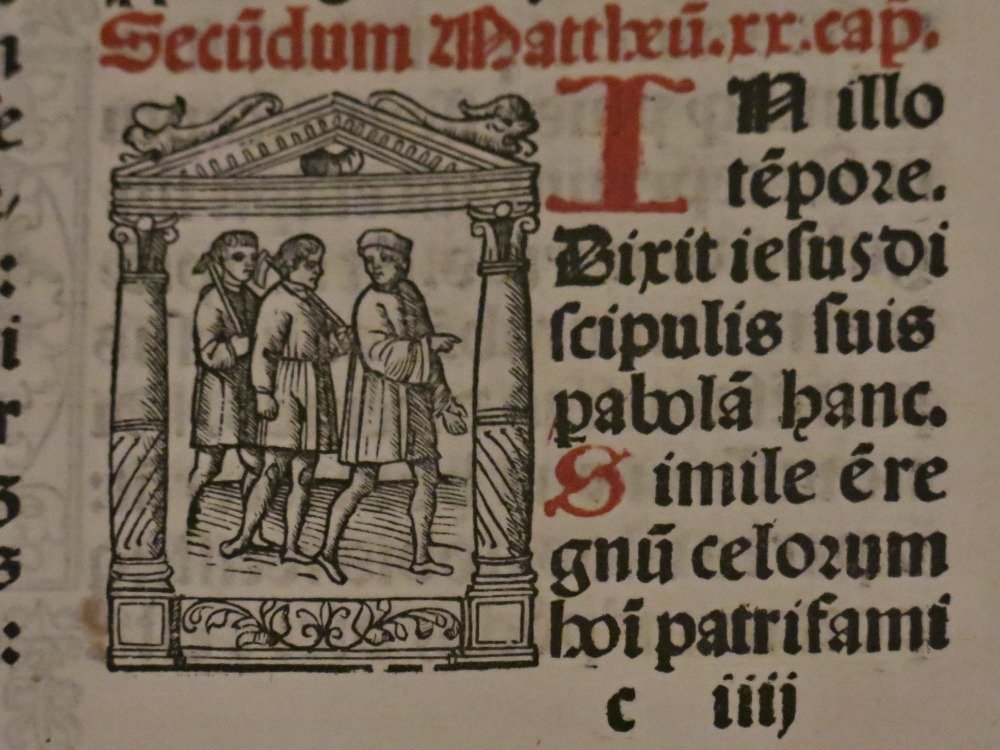 Secūdum Mattheū.xx.cap̄.
IN illo
tēpore.
Dixit iesus di
scipulis suis
pabolā hanc.
Simile ē re
gnū celorum
hoī patrifami
c iiij